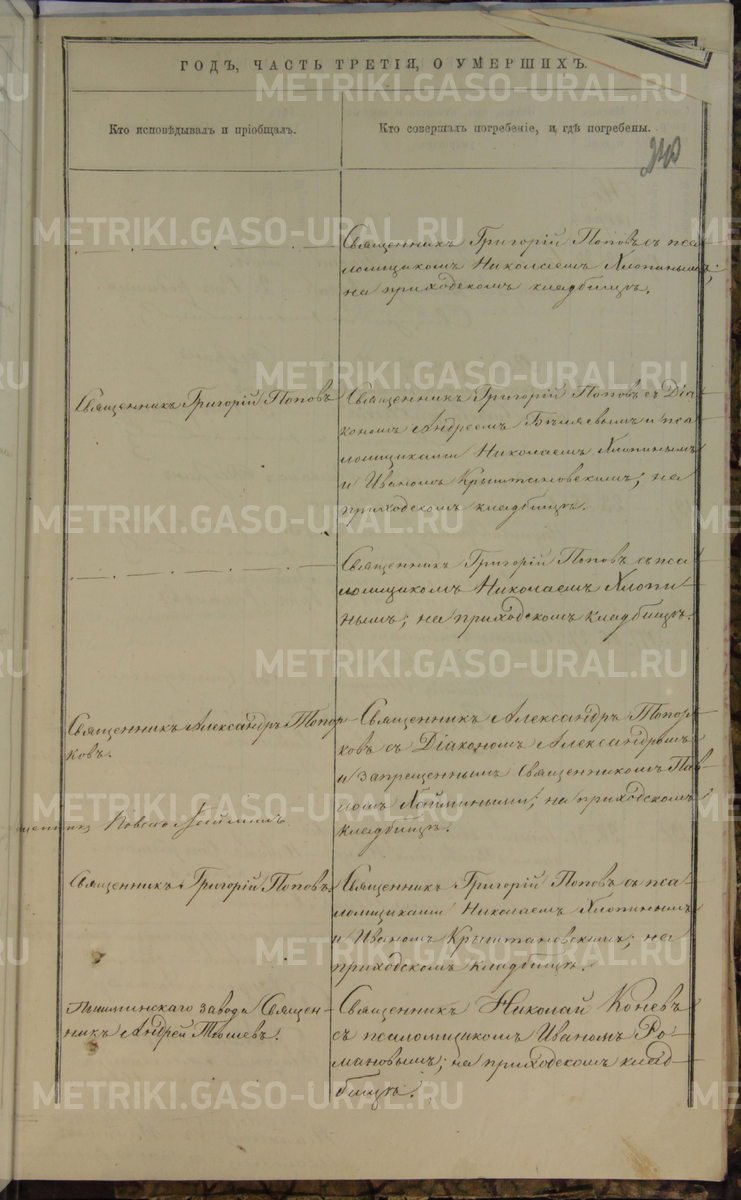 ГОДЪ, ЧАСТЬ ТРЕТІЯ, О УМЕРШИХЪ.
Кто исповѣдывалъ и пріобщалъ.
Кто совершалъ погребеніе, и гдѣ погребены.
Священникъ Григорій Поповъ съ пса-
ломщикомъ Николаемъ Хлопинымъ;
на приходскомъ кладбищѣ.
Священникъ Григорій Поповъ
Священникъ Григорій Поповъ съ Діа-
кономъ Андреемъ Бѣляевымъ и пса-
ломщиками Николаемъ Хлопинымъ
и Иваномъ Крыштановскимъ; на
приходскомъ кладбищѣ.
Священникъ Григорій Поповъ съ пса-
ломщикомъ Николаемъ Хлопи-
нымъ; на приходскомъ кладбищѣ.
Священникъ Александръ Топор-
ковъ.
Священникъ Александръ Топор-
ковъ съ Діакономъ Александромъ
и запрещеннымъ Священникомъ Пав-
ломъ Хаймиными; на приходскомъ
кладбищѣ.
Священникъ Григорій Поповъ.
Священникъ Григорій Поповъ съ пса-
ломщиками Николаемъ Хлопинымъ
и Иваномъ Крыштановскимъ; на
приходскомъ кладбищѣ.
Пышминскаго завода Священ-
никъ Андрей
Священникъ Николай Коневъ
съ псаломщикомъ Иваномъ Ро-
мановымъ; на приходскомъ клад-
бищѣ.
METRIKI.GASO-URAL.RU